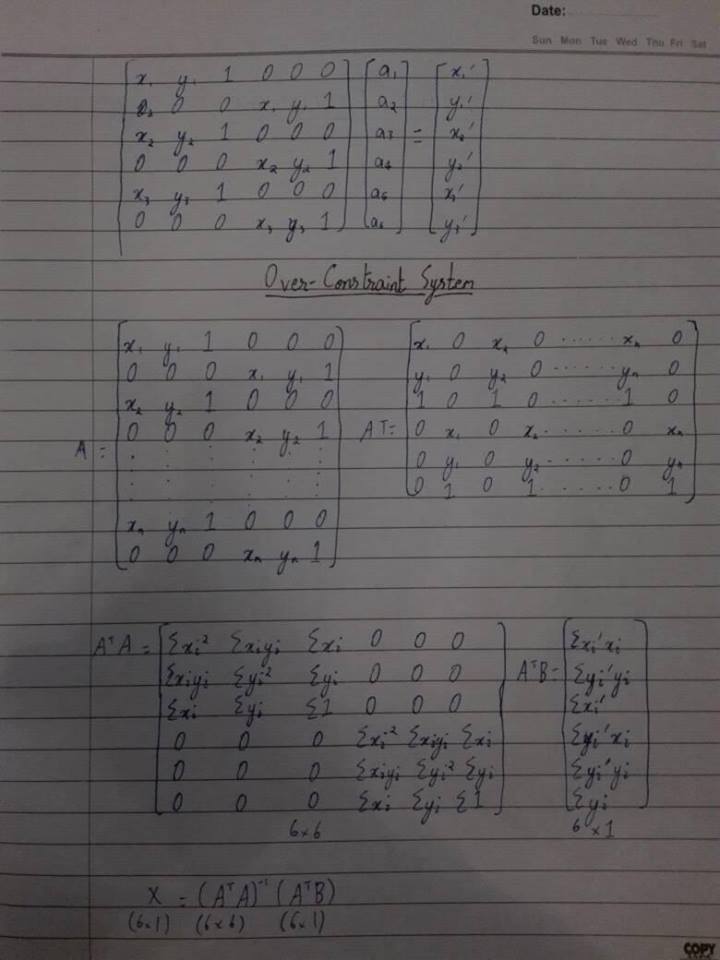 Date:
Sun Mon Tue Wed Thu Fri Sat
[x₁ y₁ 1 0 0 0] [a₁] [x₁']
[0 0 0 x₁ y₁ 1] [a₂] [y₁']
[x₂ y₂ 1 0 0 0] [a₃] = [x₂']
[0 0 0 x₂ y₂ 1] [a₄] [y₂']
[x₃ y₃ 1 0 0 0] [a₅] [x₃']
[0 0 0 x₃ y₃ 1] [a₆] [y₃']
Over-Constraint System
A = [x₁ y₁ 1 0 0 0]
[0 0 0 x₁ y₁ 1]
[x₂ y₂ 1 0 0 0]
[0 0 0 x₂ y₂ 1]
[. . . . . .]
[. . . . . .]
[xₙ yₙ 1 0 0 0]
[0 0 0 xₙ yₙ 1]
AT = [x₁ 0 x₂ 0 ...... xₙ 0]
[y₁ 0 y₂ 0 ...... yₙ 0]
[1 0 1 0 ...... 1 0]
[0 x₁ 0 x₂ ...... 0 xₙ]
[0 y₁ 0 y₂ ...... 0 yₙ]
[0 1 0 1 ...... 0 1]
AᵀA = [Σxi² Σxiyi Σxi 0 0 0]
[Σxiyi Σyi² Σyi 0 0 0]
[Σxi Σyi Σ1 0 0 0]
[0 0 0 Σxi² Σxiyi Σxi]
[0 0 0 Σxiyi Σyi² Σyi]
[0 0 0 Σxi Σyi Σ1]
6×6
AᵀB = [Σxi'xi]
[Σyi'yi]
[Σxi']
[Σyi'xi]
[Σyi'yi]
[Σyi]
6×1
X = (AᵀA)⁻¹ (AᵀB)
(6×1) (6×6) (6×1)
COPY